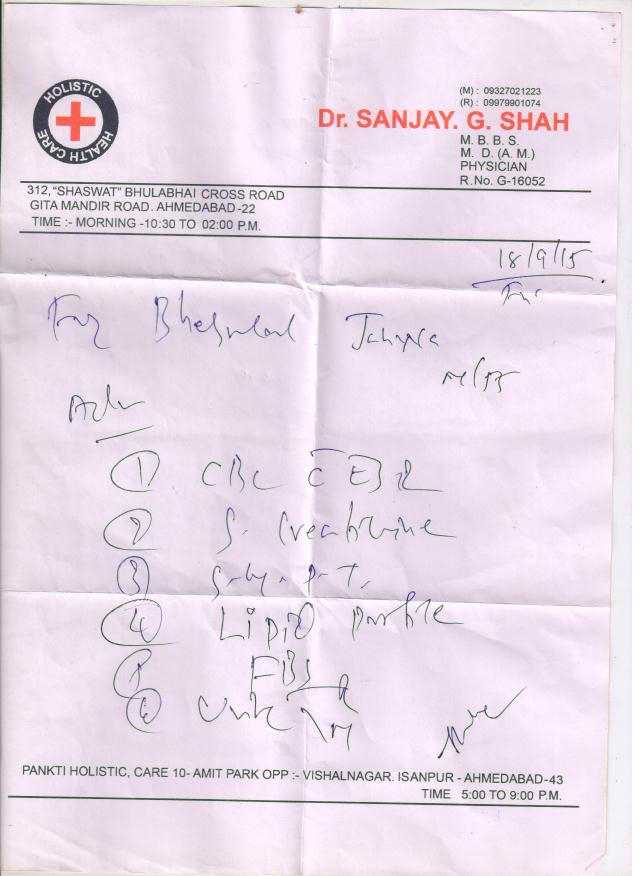 HOLISTIC
HEALTH CARE
(M) : 09327021223
(R) : 09979901074
Dr. SANJAY. G. SHAH
M. B. B. S.
M. D. (A. M.)
PHYSICIAN
R. No. G-16052
312, "SHASWAT" BHULABHAI CROSS ROAD
GITA MANDIR ROAD. AHMEDABAD-22
TIME :- MORNING -10:30 TO 02:00 P.M.
18/9/15
Adv
① CBC c̄ ESR
② S. Creatinine
③ S. G. P. T.
④ Lipid profile
⑤ FBS
⑥ Urine
PANKTI HOLISTIC, CARE 10- AMIT PARK OPP :- VISHALNAGAR. ISANPUR - AHMEDABAD-43
TIME 5:00 TO 9:00 P.M.